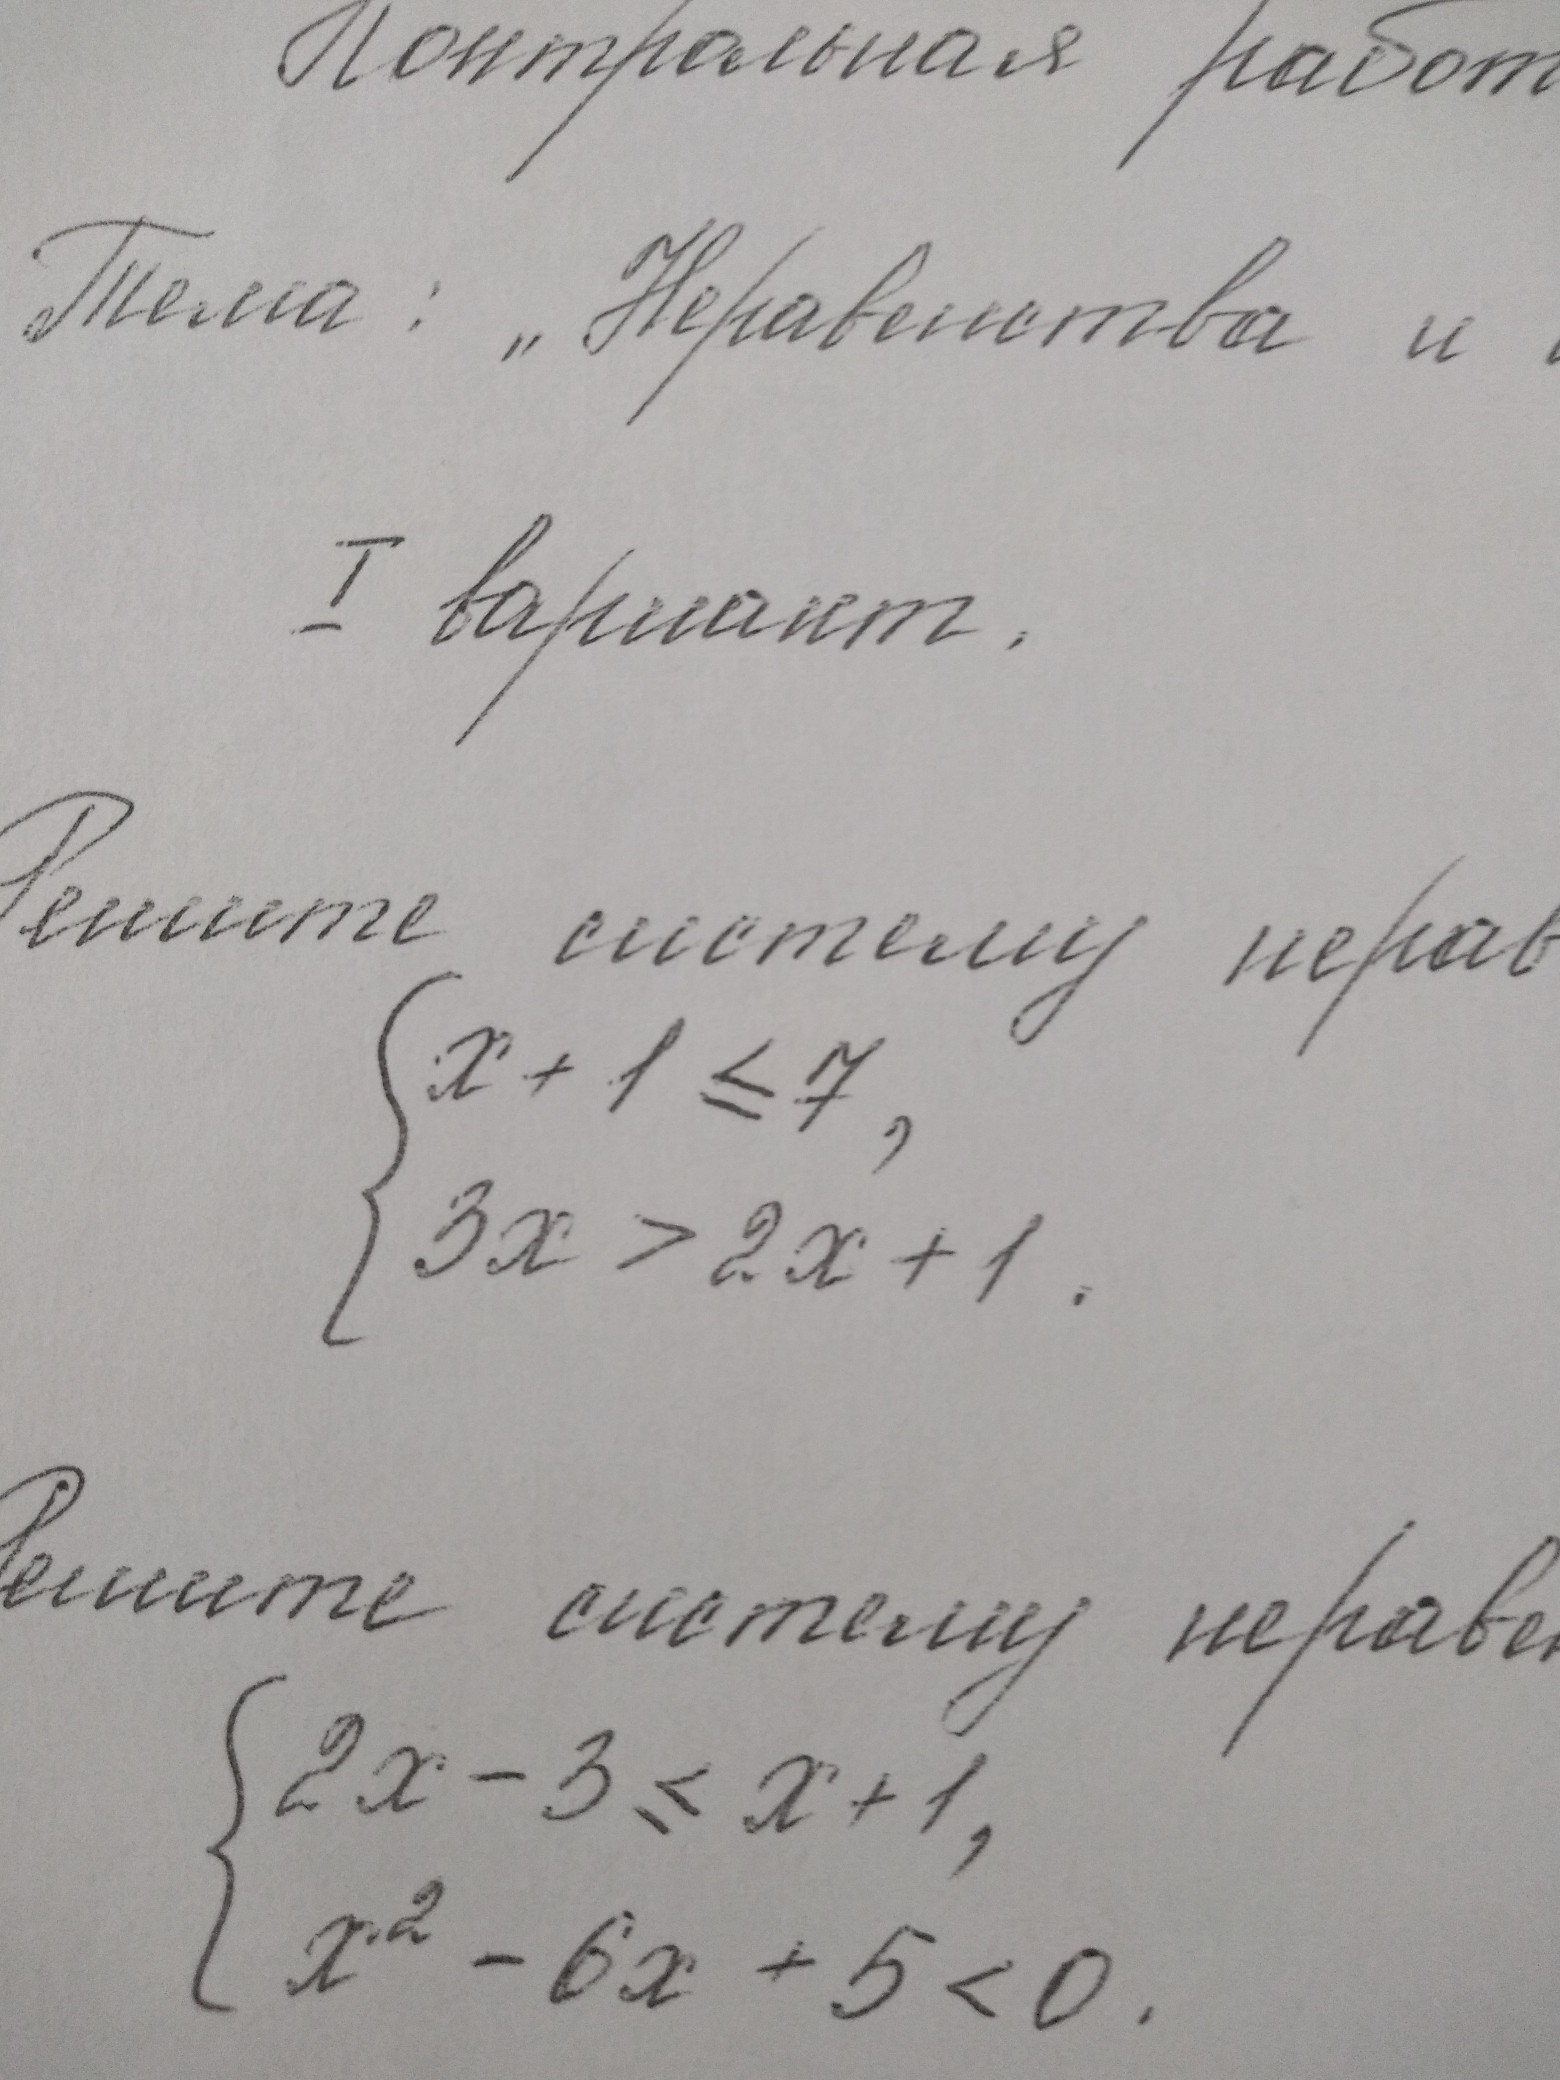 Контрольная работ
Тема: „Неравенства и
I вариант.
Решите систему нерав
x + 1 ≤ 7,
3x > 2x + 1.
Решите систему нераве
2x - 3 ≤ x + 1,
x² - 6x + 5 < 0.